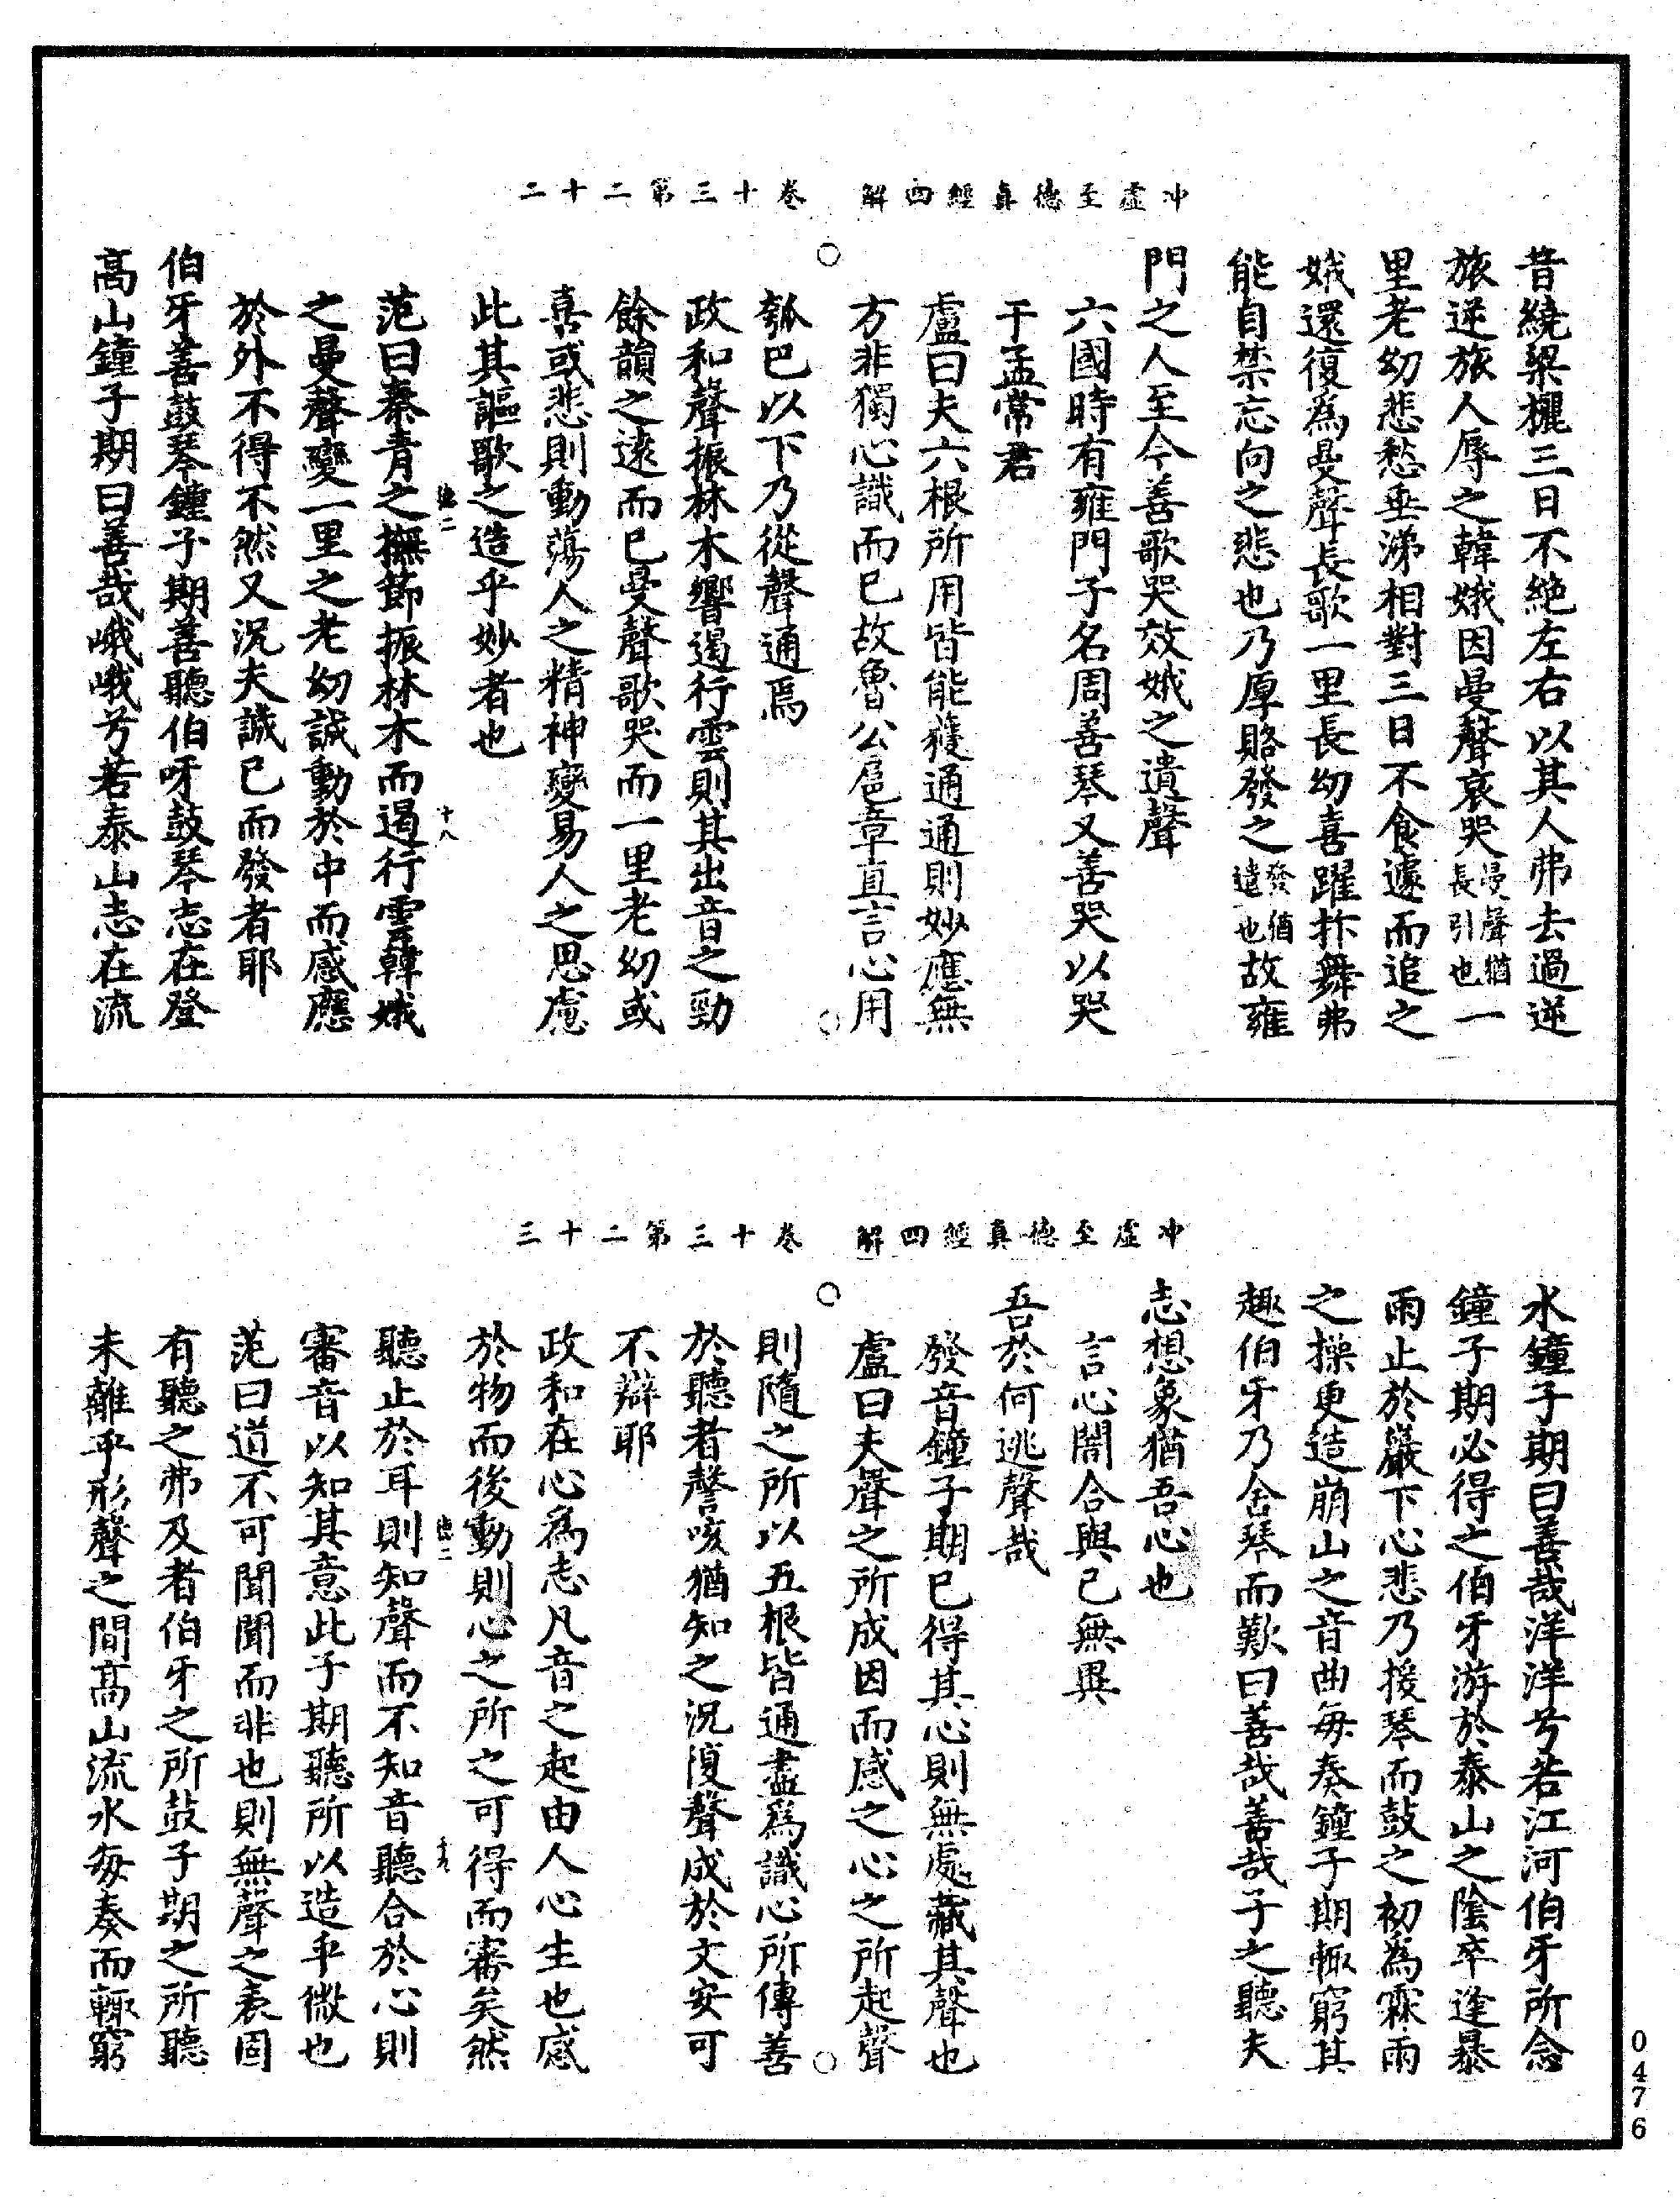 冲虛至德真經四解　卷十三第二十二
昔繞梁欐三日不絶左右以其人弗去過逆
旅逆旅人辱之韓娥因曼聲哀哭曼聲猶長引也一
里老幼悲愁垂涕相對三日不食遽而追之
娥還復為曼聲長歌一里長幼喜躍抃舞弗
能自禁忘向之悲也乃厚賂發之發猶遣也故雍
門之人至今善歌哭效娥之遺聲
六國時有雍門子名周善琴又善哭以哭
干孟常君
盧曰夫六根所用皆能獲通通則妙應無
方非獨心識而已故魯公扈章直言心用
瓠巴以下乃從聲通焉
政和聲振林木響遏行雲則其出音之勁
餘韻之遠而已曼聲歌哭而一里老幼或
喜或悲則動蕩人之精神變易人之思慮
此其謳歌之造乎妙者也
德二　十八
范曰秦青之撫節振林木而遏行雲韓娥
之曼聲變一里之老幼誠動於中而感應
於外不得不然又況夫誠已而發者耶
伯牙善鼓琴鐘子期善聽伯呀鼓琴志在登
高山鐘子期曰善哉峨峨兮若泰山志在流
冲虛至德真經四解　卷十三第二十三
水鐘子期曰善哉洋洋兮若江河伯牙所念
鐘子期必得之伯牙游於泰山之陰卒逢暴
雨止於巖下心悲乃援琴而鼓之初為霖雨
之操更造崩山之音曲每奏鐘子期輒窮其
趣伯牙乃舍琴而歎曰善哉善哉子之聽夫
志想象猶吾心也
言心闇合與己無異
吾於何逃聲哉
發音鐘子期已得其心則無處藏其聲也
盧曰夫聲之所成因而感之心之所起聲
則隨之所以五根皆通盡為識心所傳善
於聽者謦咳猶知之況復聲成於文安可
不辯耶
政和在心為志凡音之起由人心生也感
於物而後動則心之所之可得而審矣然
德二　十九
聽止於耳則知聲而不知音聽合於心則
審音以知其意此子期聽所以造乎微也
范曰道不可聞聞而非也則無聲之表固
有聽之弗及者伯牙之所鼓子期之所聽
未離乎形聲之間高山流水每奏而輒窮
0476